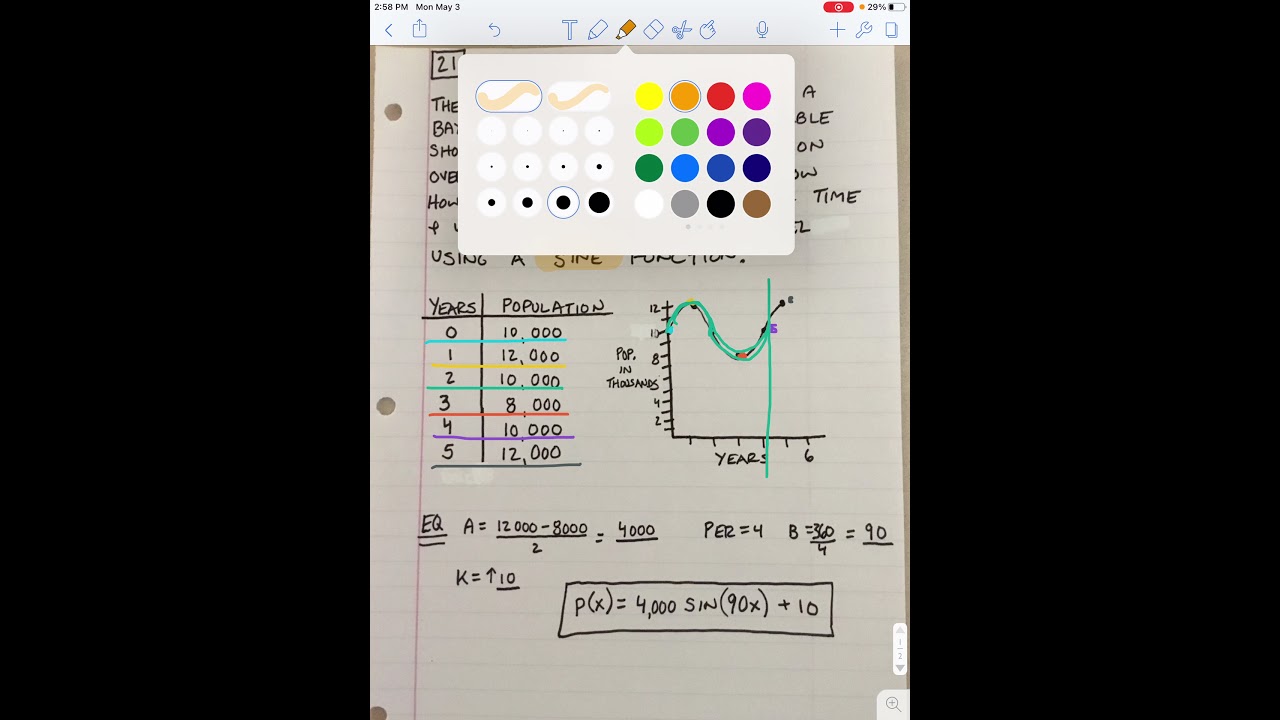 2:58 PM Mon May 3
29%
T
21
THE
A
BAY
BLE
SHO
ON
OVE
OW
HOW
TIME
&
EL
USING A SINE FUNCTION.
YEARS POPULATION
0 10,000
1 12,000
2 10,000
3 8,000
4 10,000
5 12,000
12
10
8
4
2
POP.
IN
THOUSANDS
YEARS 6
EQ A = 12000-8000 = 4000 PER = 4 B = 360 = 90
2 4
K = ↑10
P(x) = 4,000 SIN(90x) + 10
1
2